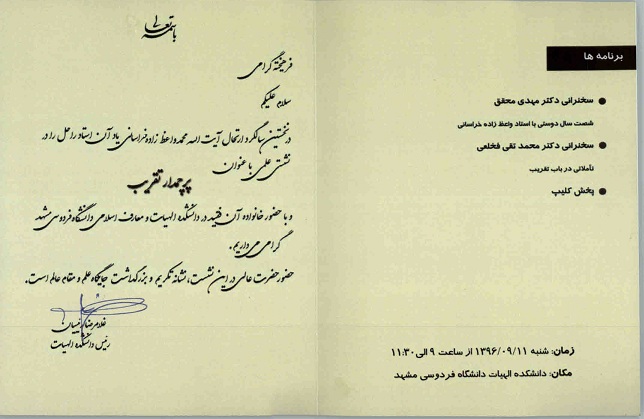 باسمه تعالی
فرهیخته گرامی
سلام علیکم
در نخستین سالگرد ارتحال آیت الله محمد واعظ زاده خراسانی یاد آن استاد راحل را در
نشستی علمی با عنوان
پرچمدار تقریب
و با حضور خانواده آن فقید در دانشکده الهیات و معارف اسلامی دانشگاه فردوسی مشهد
گرامی می داریم.
حضور حضرت عالی در این نشست، نشانه تکریم و بزرگداشت جایگاه علم و مقام عالم است.
غلامرضا رئیسیان
رئیس دانشکده الهیات
برنامه ها
● سخنرانی دکتر مهدی محقق
شصت سال دوستی با استاد واعظ زاده خراسانی
● سخنرانی دکتر محمد تقی فخلعی
تأملاتی در باب تقریب
● پخش کلیپ
زمان: شنبه ۱۳۹۶/۰۹/۱۱ از ساعت ۹ الی ۱۱:۳۰
مکان: دانشکده الهیات دانشگاه فردوسی مشهد